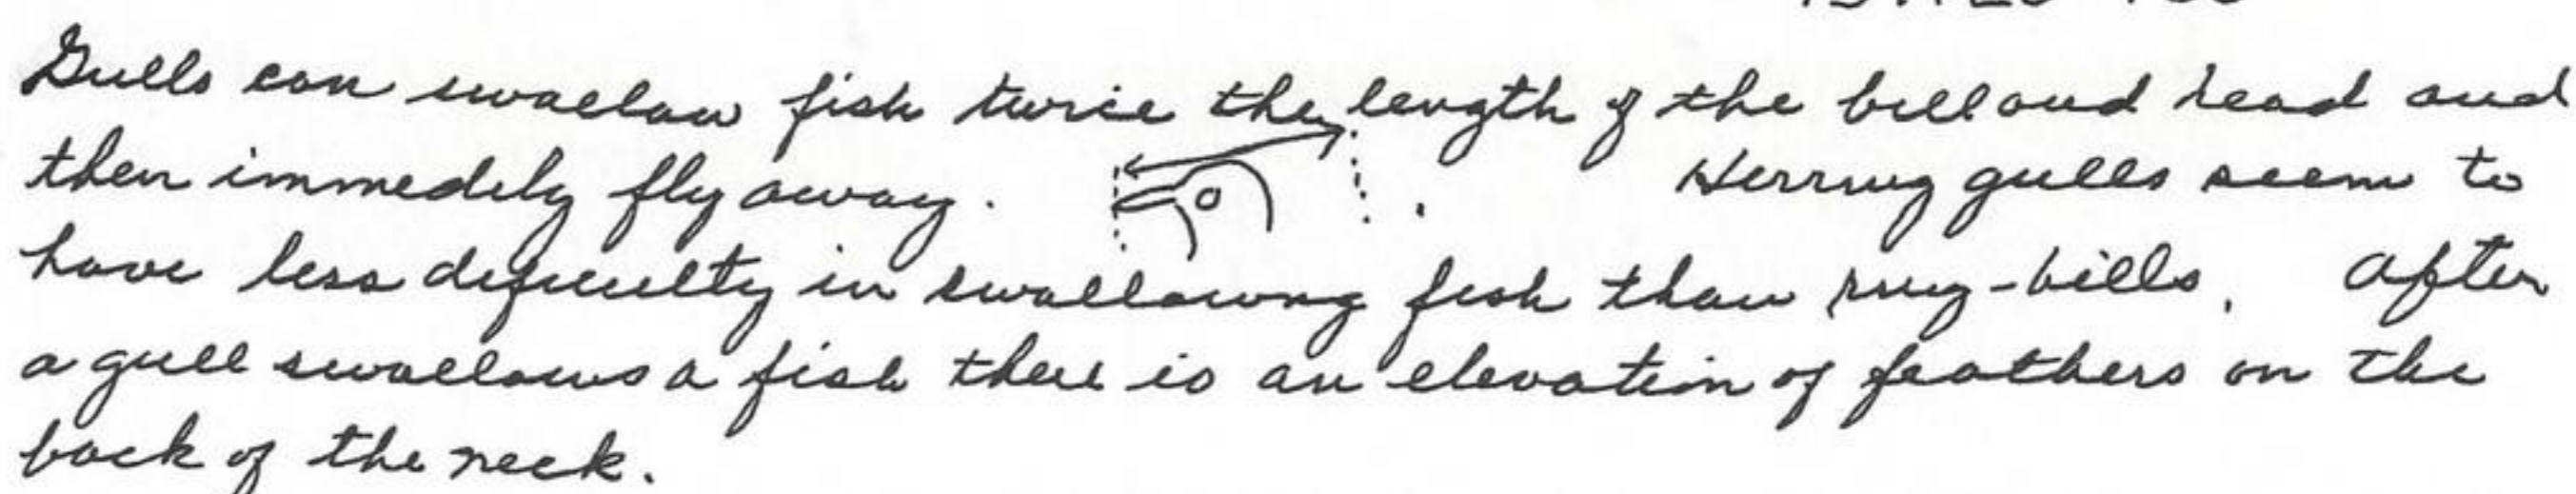 Gulls can swallow fish twice the length of the bill and head and
then immedily fly away. Herring gulls seem to
have less difficulty in swallowing fish than ring-bills. After
a gull swallows a fish there is an elevation of feathers on the
back of the neck.